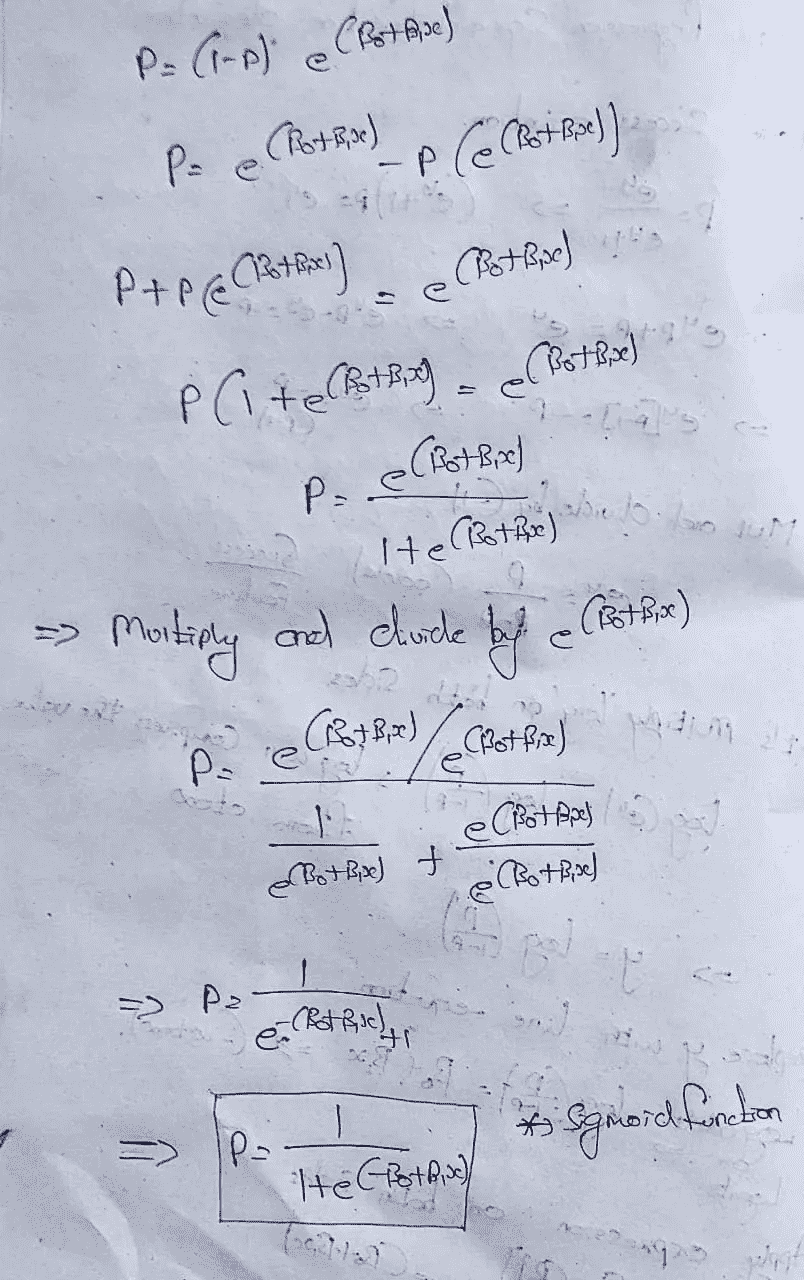 P = (1-P) e^(β₀+β₁x)
P = e^(β₀+β₁x) - P (e^(β₀+β₁x))
P + P (e^(β₀+β₁x)) = e^(β₀+β₁x)
P (1 + e^(β₀+β₁x)) = e^(β₀+β₁x)
P = e^(β₀+β₁x) / 1 + e^(β₀+β₁x)
=> Multiply and divide by e^(β₀+β₁x)
P = e^(β₀+β₁x) / e^(β₀+β₁x)
1 / e^(β₀+β₁x) + e^(β₀+β₁x) / e^(β₀+β₁x)
=> P = 1 / e^-(β₀+β₁x) + 1
=> P = 1 / 1 + e^(-β₀+β₁x) * Sigmoid function